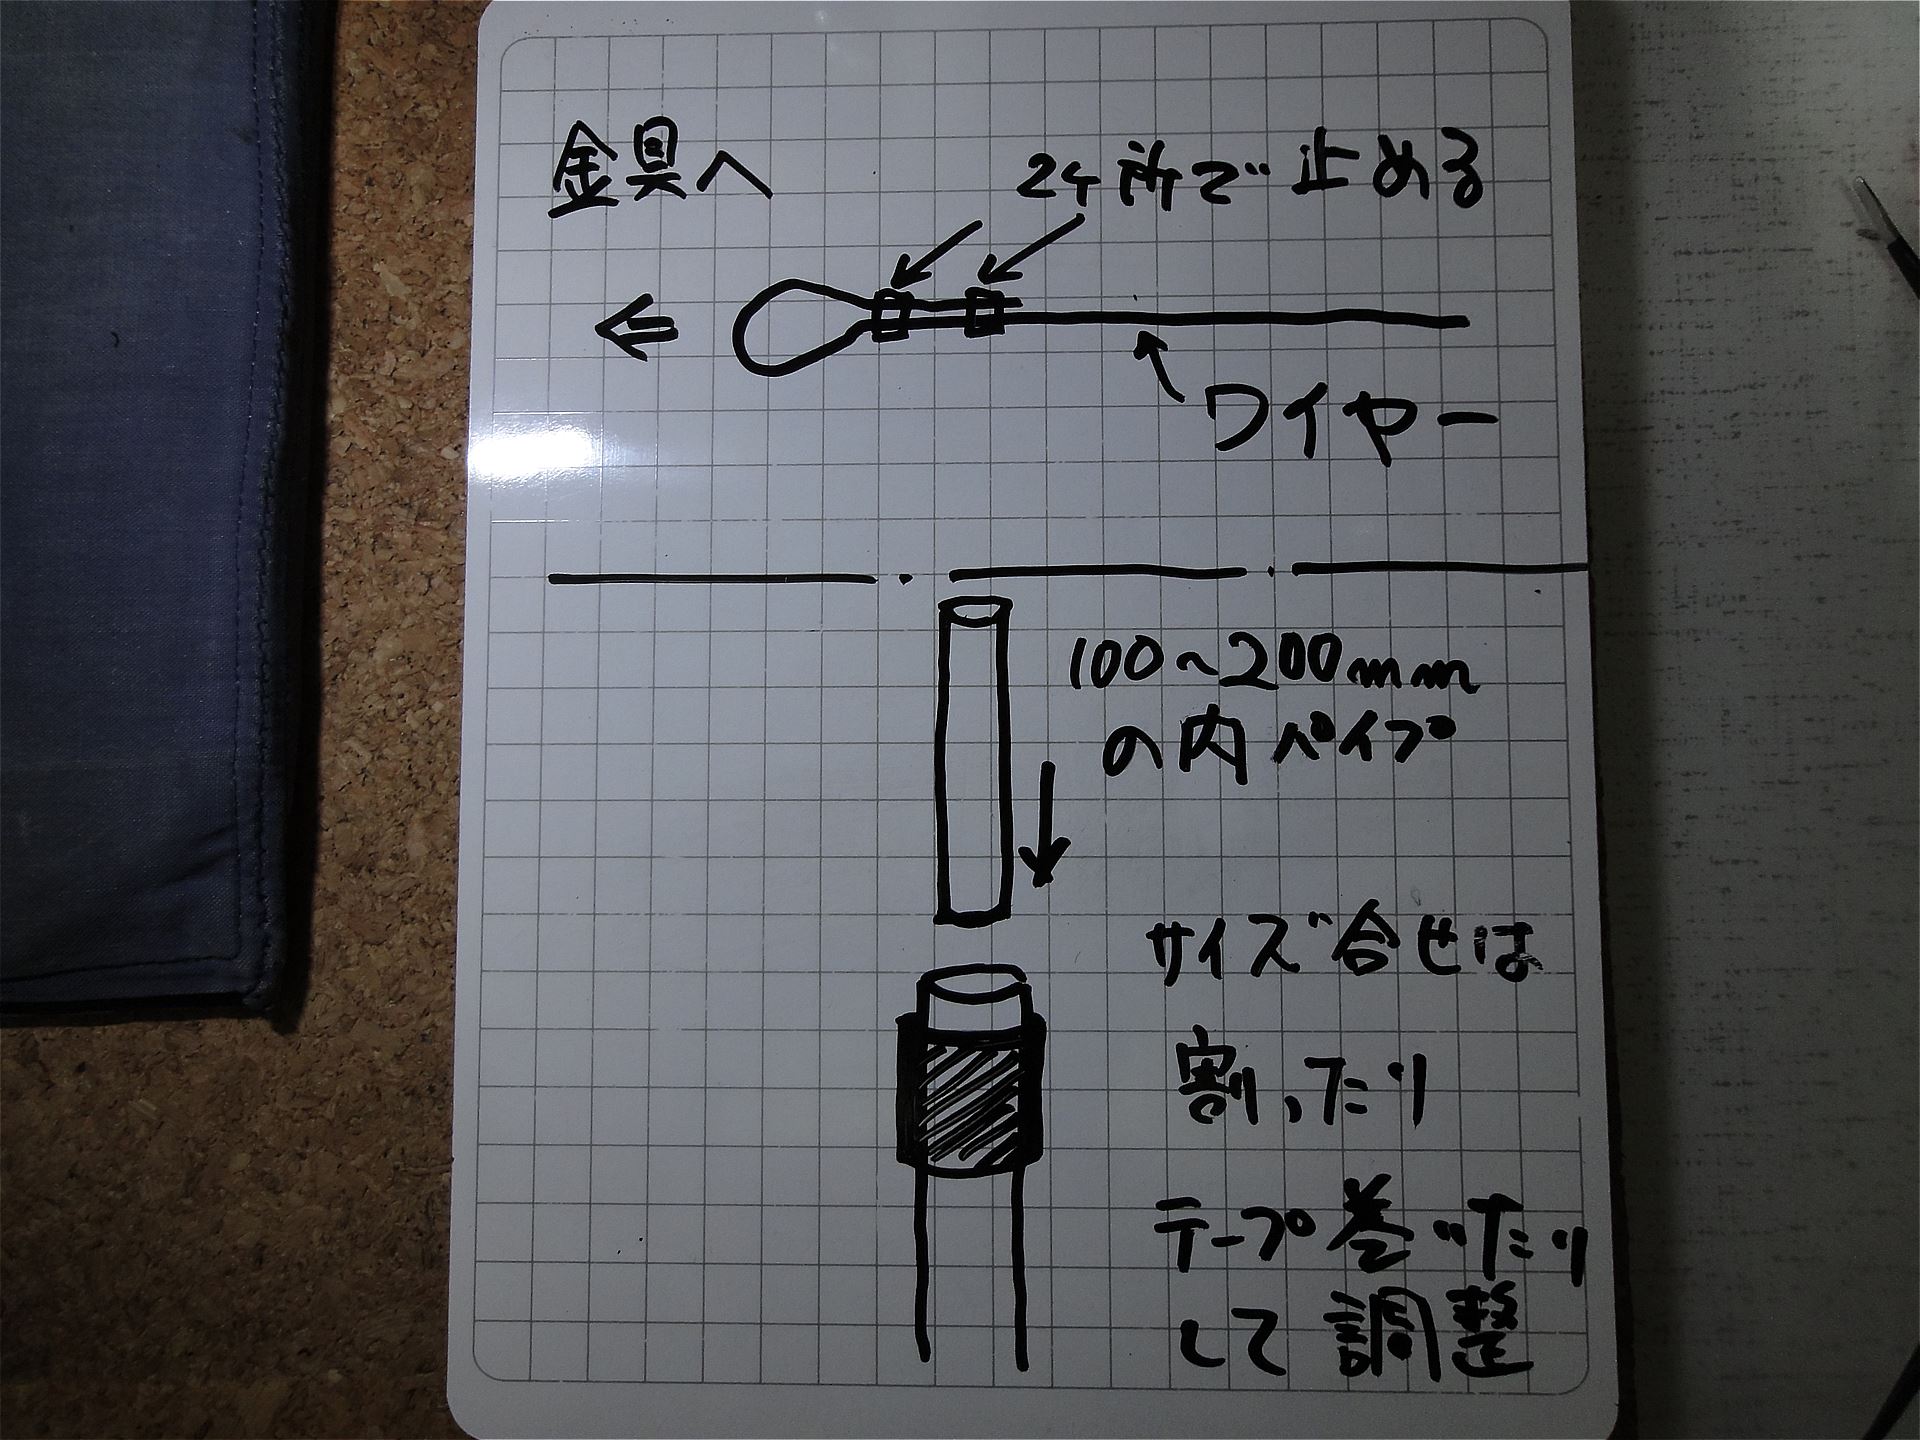 金具へ
2ヶ所で止める
ワイヤー
100～200mm
の内パイプ
サイズ合せは
割ったり
テープ巻いたり
して調整